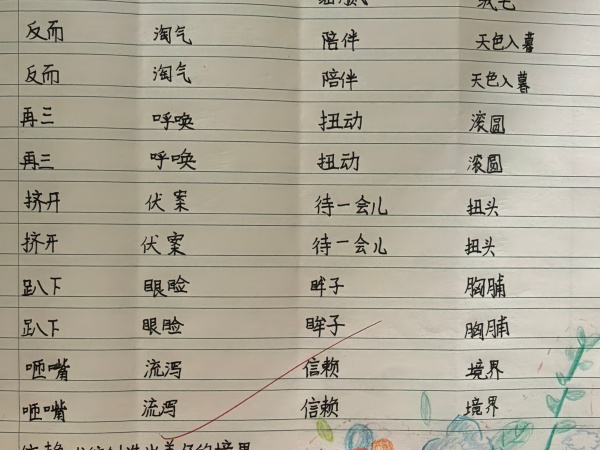 绒毛
反而 淘气 陪伴 天色入暮
反而 淘气 陪伴 天色入暮
再三 呼唤 扭动 滚圆
再三 呼唤 扭动 滚圆
挤开 伏案 待一会儿 扭头
挤开 伏案 待一会儿 扭头
趴下 眼睑 眸子 胸脯
趴下 眼睑 眸子 胸脯
咂嘴 流泻 信赖 境界
咂嘴 流泻 信赖 境界
信赖 创造出美好的境界